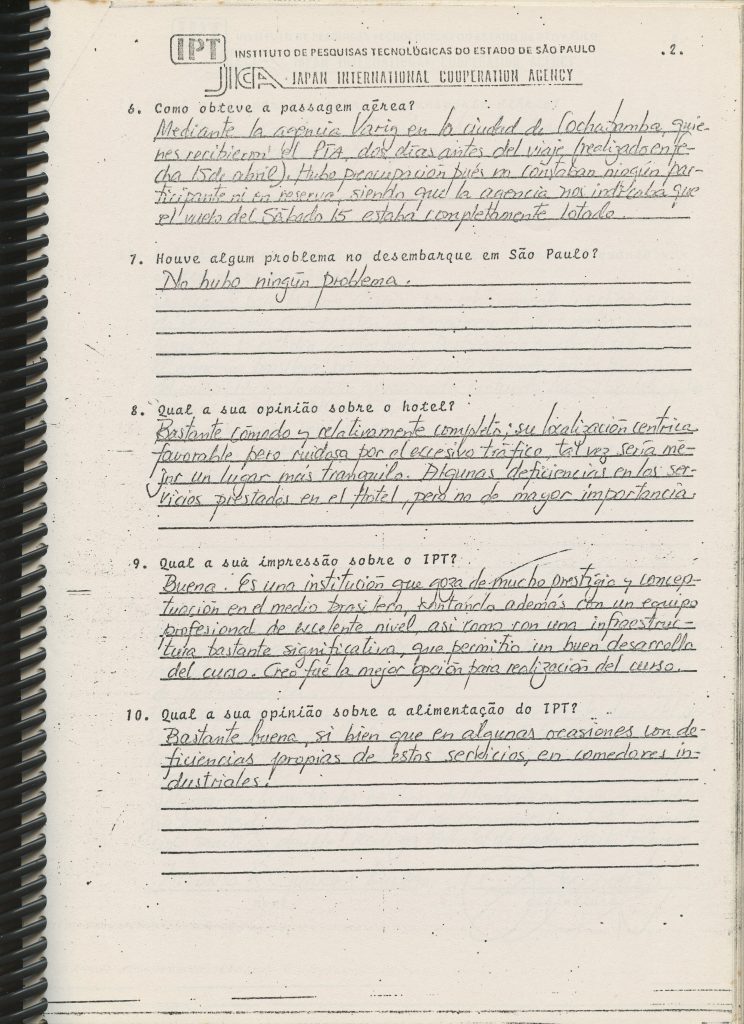 IPT INSTITUTO DE PESQUISAS TECNOLÓGICAS DO ESTADO DE SÃO PAULO .2.
JICA · JAPAN INTERNATIONAL COOPERATION AGENCY
6. Como obteve a passagem aérea?
Mediante la agencia Varig en la ciudad de Cochabamba, quie-
nes recibieron el PTA, dos días antes del viaje (realizado en fe-
cha 15 de abril). Hubo preocupación pués no constaban ningún par-
ticipante ni en reserva, siendo que la agencia nos indicaba que
el vuelo del Sábado 15 estaba completamente lotado.
7. Houve algum problema no desembarque em São Paulo?
No hubo ningún problema.
8. Qual a sua opinião sobre o hotel?
Bastante cómodo y relativamente completo; su localización centrica
favorable pero ruidosa por el excesivo tráfico, tal vez sería me-
jor un lugar más tranquilo. Algunas deficiencias en los ser-
vicios prestados en el Hotel, pero no de mayor importancia.
9. Qual a sua impressão sobre o IPT?
Buena. Es una institución que goza de mucho prestigio y concep-
tuación en el medio brasilero, contando además con un equipo
profesional de excelente nivel, asi como con una infraestruc-
tura bastante significativa, que permitió un buen desarrollo
del curso. Creo fué la mejor opción para realización del curso.
10. Qual a sua opinião sobre a alimentação do IPT?
Bastante buena, si bien que en algunas ocasiones con de-
ficiencias propias de estos servicios, en comedores in-
dustriales.